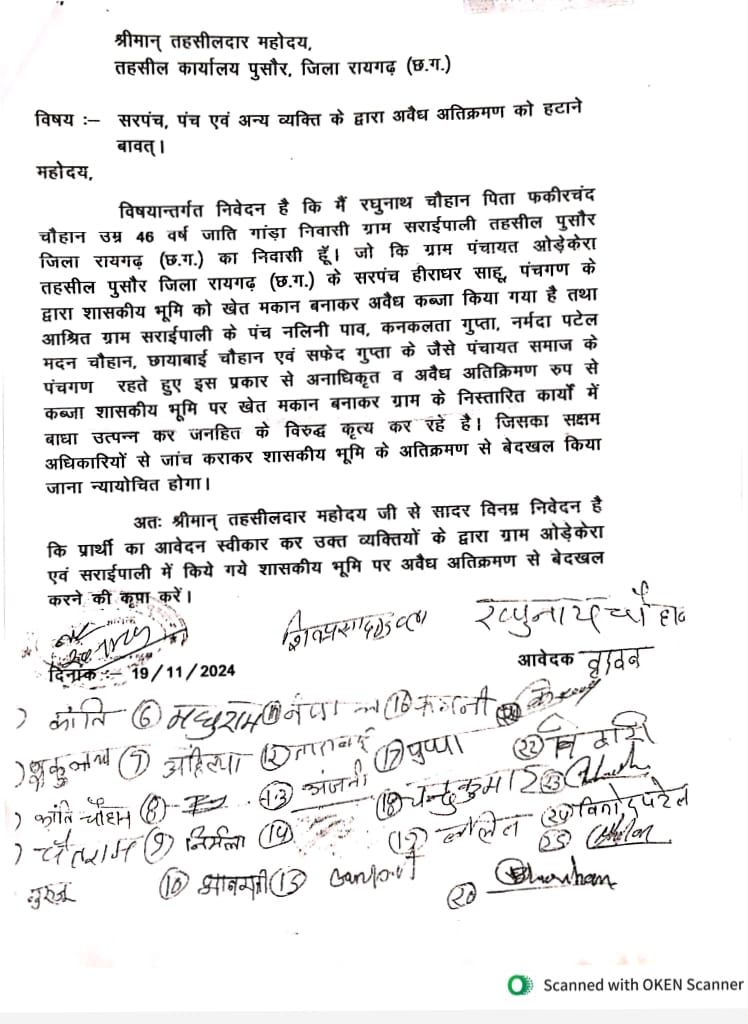 श्रीमान् तहसीलदार महोदय,
तहसील कार्यालय पुसौर, जिला रायगढ़ (छ.ग.)
विषय :– सरपंच, पंच एवं अन्य व्यक्ति के द्वारा अवैध अतिक्रमण को हटाने
बावत्।
महोदय,
विषयान्तर्गत निवेदन है कि मैं रघुनाथ चौहान पिता फकीरचंद
चौहान उम्र 46 वर्ष जाति गांड़ा निवासी ग्राम सराईपाली तहसील पुसौर
जिला रायगढ़ (छ.ग.) का निवासी हूँ। जो कि ग्राम पंचायत ओड़ेकेरा
तहसील पुसौर जिला रायगढ़ (छ.ग.) के सरपंच हीराधर साहू, पंचगण के
द्वारा शासकीय भूमि को खेत मकान बनाकर अवैध कब्जा किया गया है तथा
आश्रित ग्राम सराईपाली के पंच नलिनी पाव, कनकलता गुप्ता, नर्मदा पटेल
मदन चौहान, छायाबाई चौहान एवं सफेद गुप्ता के जैसे पंचायत समाज के
पंचगण रहते हुए इस प्रकार से अनाधिकृत व अवैध अतिक्रिमण रुप से
कब्जा शासकीय भूमि पर खेत मकान बनाकर ग्राम के निस्तारित कार्यों में
बाधा उत्पन्न कर जनहित के विरुद्ध कृत्य कर रहें है। जिसका सक्षम
अधिकारियों से जांच कराकर शासकीय भूमि के अतिक्रमण से बेदखल किया
जाना न्यायोचित होगा।
अतः श्रीमान् तहसीलदार महोदय जी से सादर विनम्र निवेदन है
कि प्रार्थी का आवेदन स्वीकार कर उक्त व्यक्तियों के द्वारा ग्राम ओड़ेकेरा
एवं सराईपाली में किये गये शासकीय भूमि पर अवैध अतिक्रमण से बेदखल
करने की कृपा करें।
रघुनाथ चौहान
दिनांक :– 19/11/2024 आवेदक
कांति 6 मधुराम 11 16
7 अहिल्या 12 17 पुष्पा 22
कांति चौहान 8 13 अंजनी 18 चन्द्रकुमार 23
चैतराम 9 निर्मला 14 19 ललित 24 विनोद पटेल
25
10 15 20
Scanned with OKEN Scanner